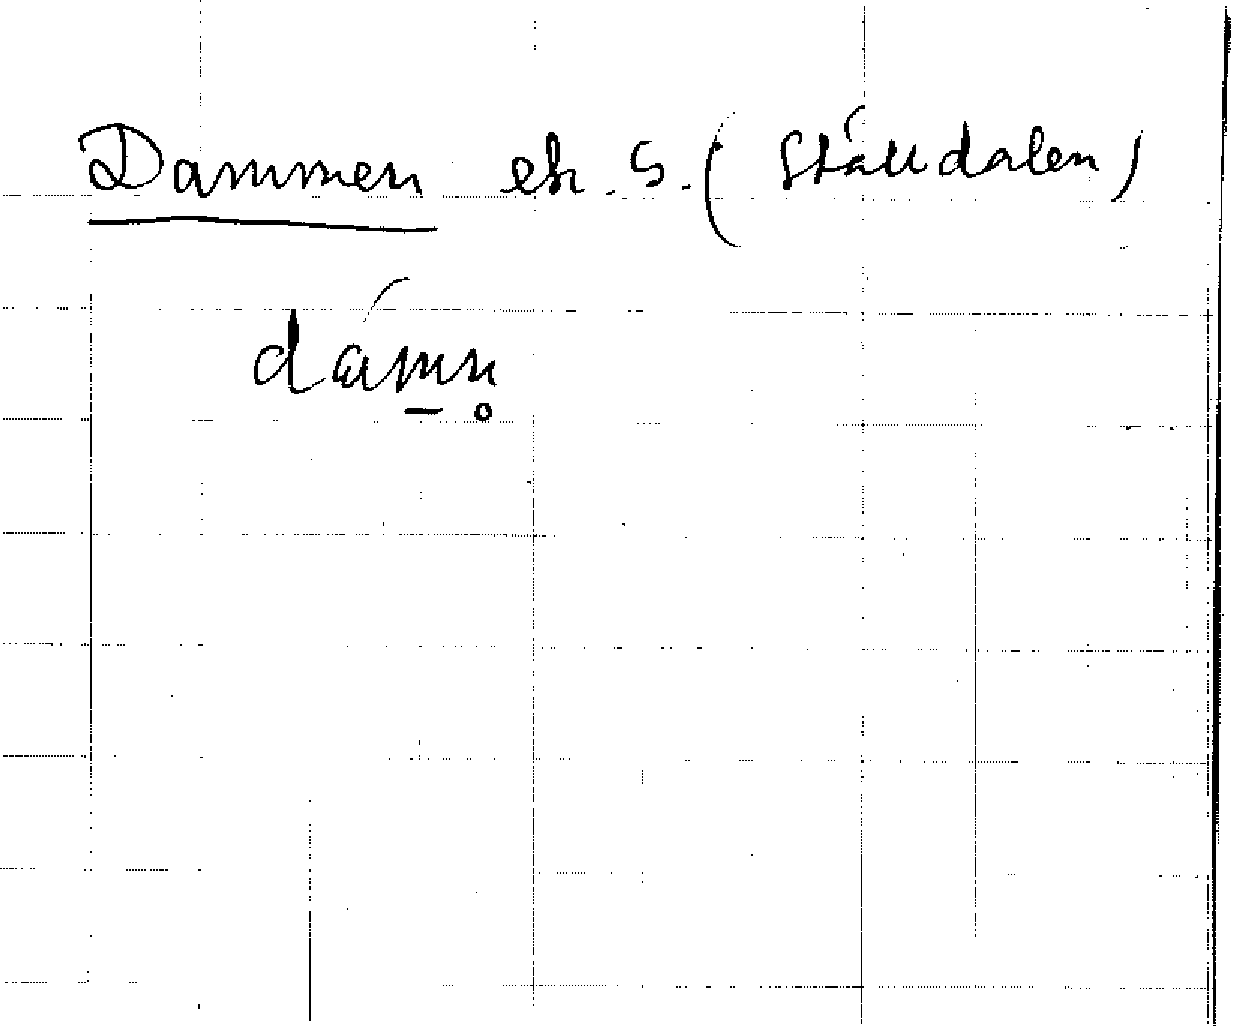 Dammen ek. S. (Ståldalen)
dámn̥